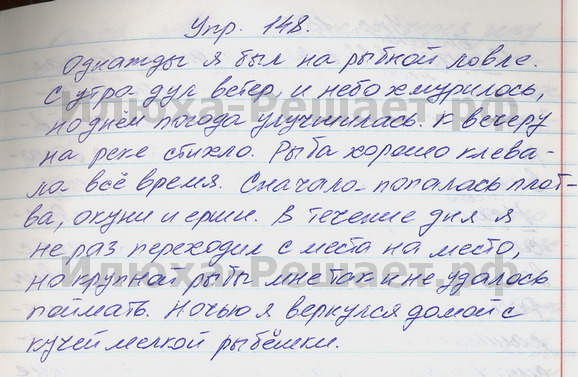 Упр. 148.
Однажды я был на рыбной ловле.
С утра дул ветер, и небо хмурилось,
но днём погода улучшилась. К вечеру
на реке стихло. Рыба хорошо клева-
ла всё время. Сначала попалась плот-
ва, окуни и ерши. В течение дня я
не раз переходил с места на место,
но крупной рыбы мне так и не удалось
поймать. Ночью я вернулся домой с
кучей мелкой рыбёшки.
Илюха-Решает.рф
Илюха-Решает.рф